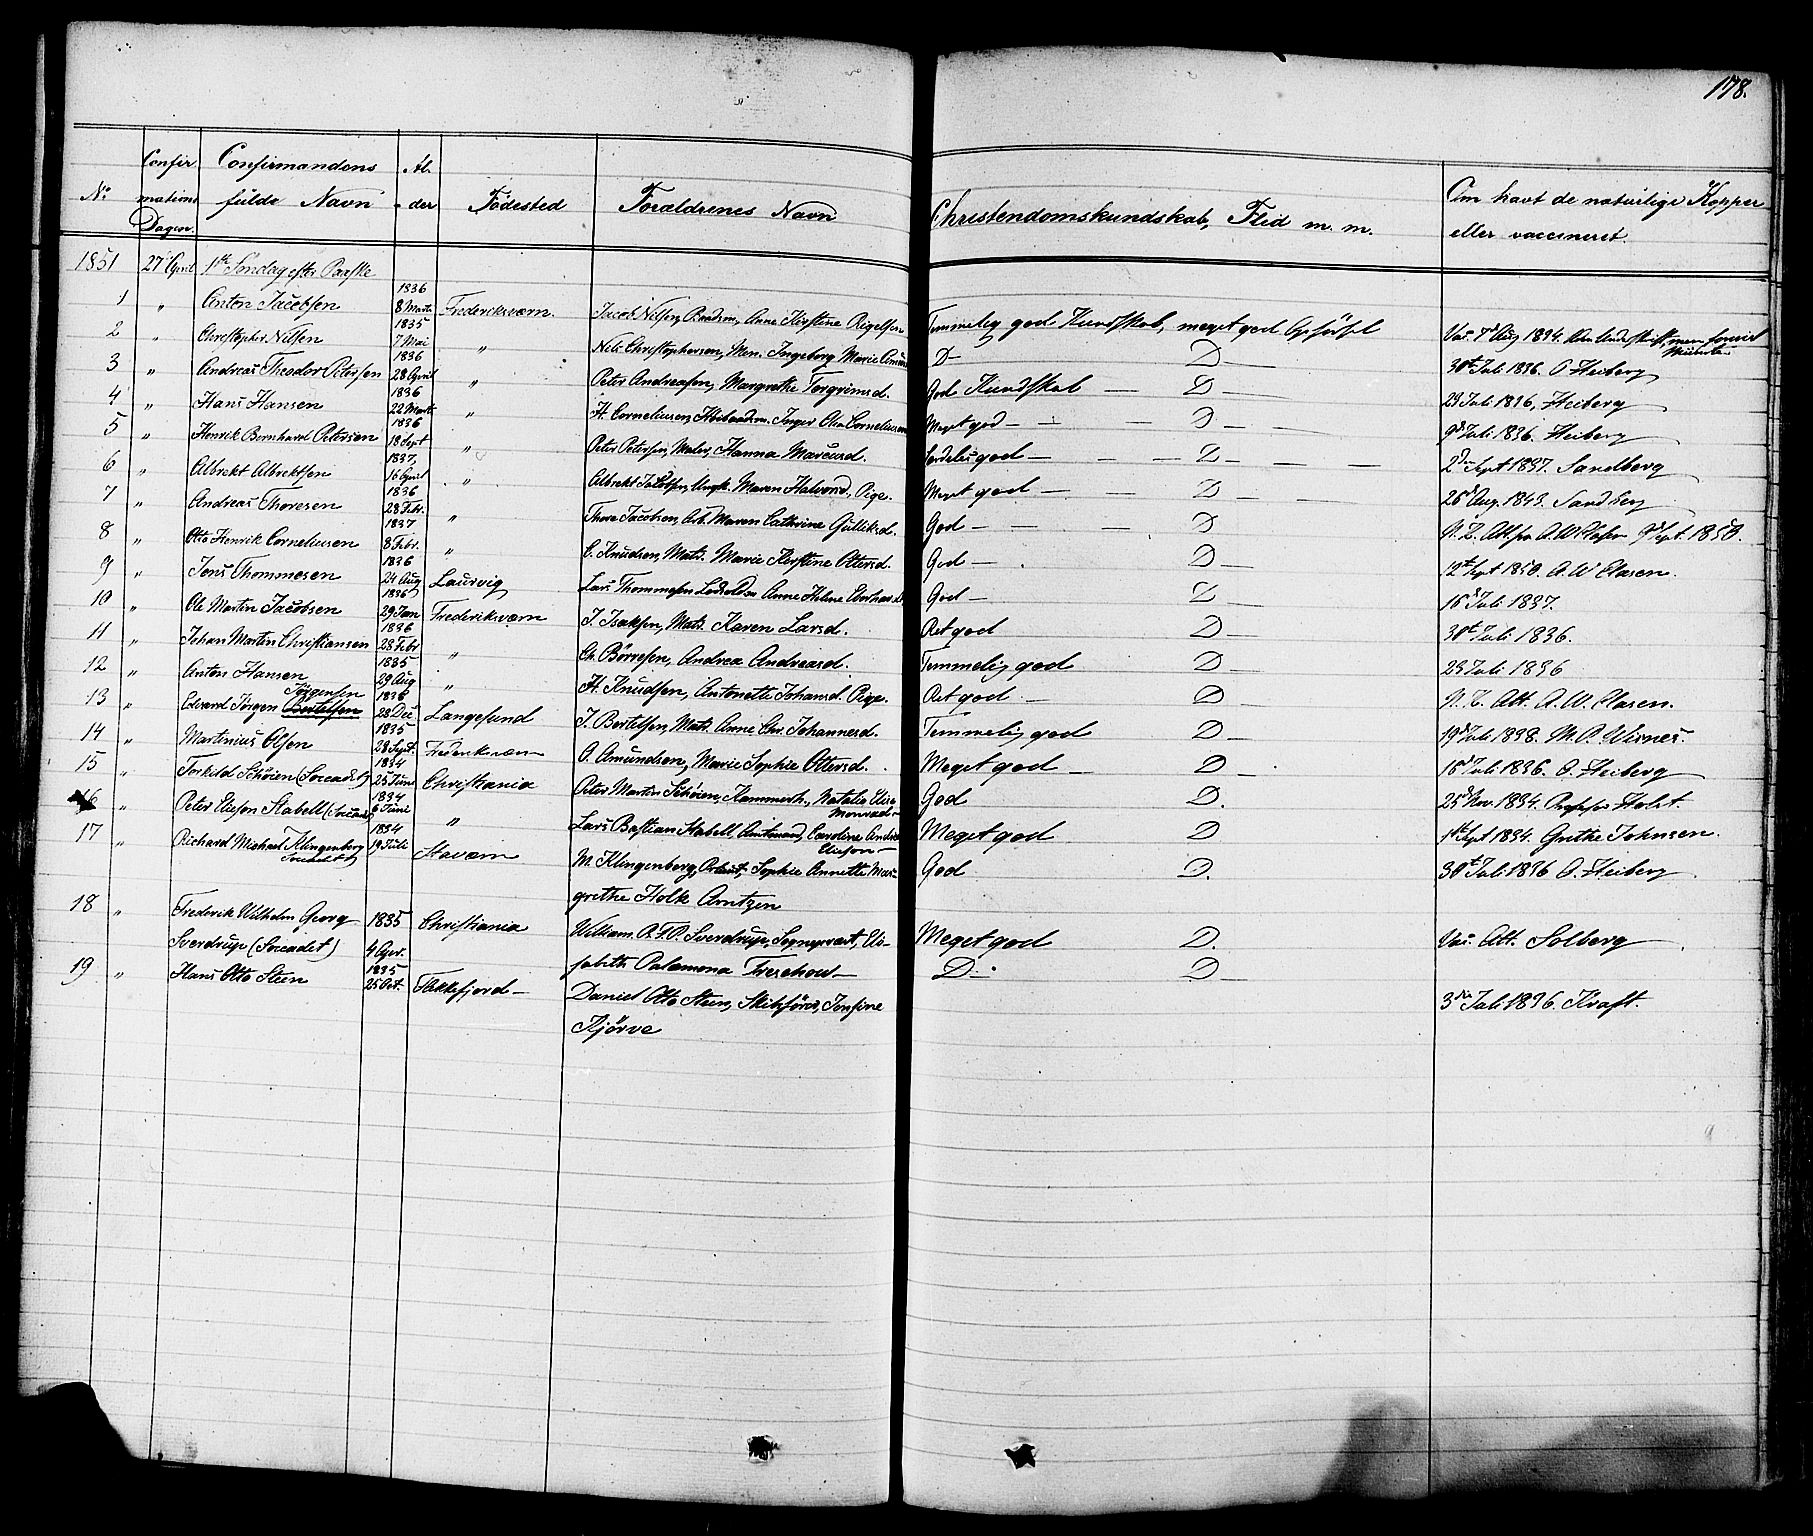 178.
No Confirmations Dagen. Confirmandens fulde Navn Alder Fødested Forældrenes Navn Christendomskundskab, Flid m. m. Om havt de naturlige Kopper eller vaccineret.
1851 27 April 1ste Søndag efter Paaske
1 " Anton Jacobsen 1836 8 Marts Frederiksværn. Jacob Nilsen, Anne Kirstine Rigelsen Temmelig god Kundskab, meget god Opførsel
2 " Christopher Nilsen 1835 7 Mai " Nils Christophersen, Ingeborg Marie D— D— Vac. 7 Aug 1834.
3 " Andreas Theodor Petersen 1836 28 April " Peter Andreasen, Margrethe Torgrimsd. God Kundskab — D— 30te Juli 1836. O Heiberg
4 " Hans Hansen 1836 22 Marts " H. Corneliusen, Inger Corneliusen Meget god — D— 23 Juli 1836, Heiberg
5 " Henrik Bernhard Petersen 1836 18 Sept " Peter Petersen, Maler, Hanna Marcusd. Særdeles god — D— 9d Juli 1836. Heiberg
6 " Albrekt Albrektsen 1837. 16 April " Albrekt Jacobsen, Ungk. Maren Halvorsd. Pige. Meget god — D— 2d Sept 1837. Sandberg
7 " Andreas Thoresen 1836 28 Febr. " Thore Jacobsen, Arb. Maren Cathrine Gulliksd. God — D 26d Aug. 1843. Sandberg
8 " Otto Henrik Corneliusen 1837 8 Febr. " C. Knudsen, Matr. Marie Kirstine Ottersd. God — D— N. Z. Att. fra A. W. Clasen 9d Sept. 1850.
9 " Jens Thommesen 1836 24 Aug Laurvig Lars Thommesen Anne Helene God — D— 12te Sept 1850. A. W Clasen.
10 " Ole Martin Jacobsen 1836 29 Jan Frederiksværn J. Isaksen, Matr. Karen Larsd. Ret god D— 16d Juli 1837.
11 " Johan Martin Christiansen 1836 28 Febr " Ch. Börresen, Andrea Andreasd. Temmelig god D— 30te Juli 1836.
12 " Anton Hansen 1835 29 Aug " H. Knudsen, Antonette Johansd. Pige. Ret god D— 23 Juli 1836
13 " Edvard Jørgen Bertelsen Jörgensen 1836 28 Dec Langesund J. Bertelsen, Matr. Anne Chr. Johannesd. Temmelig god D— N. Z. Att. A. W. Clasen.
14 " Martinius Olsen 1835 28 Sept. Frederiksværn O. Amundsen, Marie Sophie Ottersd. Meget god — D— 19d Juli 1838. M. P. Wisnes.
15 " Torkild Schöien (Søcadet) 1834 25 Juni Christiania Peter Martin Schöien, Kammerh., Natalia Elise Monrad — God D. 16d Juli 1836. O. Heiberg
16 " Peter Elieson Stabell (Søcadet) 1834 6 Juni " Lars Bastian Stabell, Amtmand, Caroline Andrea Elieson — Meget god D. 25d Nov. 1834. Professor Holst.
17 " Richard Michael Klingenberg Søcadet 1834 19 Juli Staværn M. Klingenberg, Sophie Annette Mar- God D. 1ste Sept 1834. Grethe Johnsen.
grethe Holk Arntzen 30te Juli 1836 O. Heiberg
18 " Frederik Wilhelm Georg 1835 Christiania William. R. F. O. Sverdrup, Sognepræst, Eli- Meget god D. Vac. Att. Solberg
Sverdrup (Søcadet) 4 Apr. sabeth Palæmona Treschow—
19 " Hans Otto Steen 1835 25 Oct. Flekkefjord — Daniel Otto Steen, Skibsförer, Jonsine D— D— 3die Juli 1836. Kraft.
Kjörve